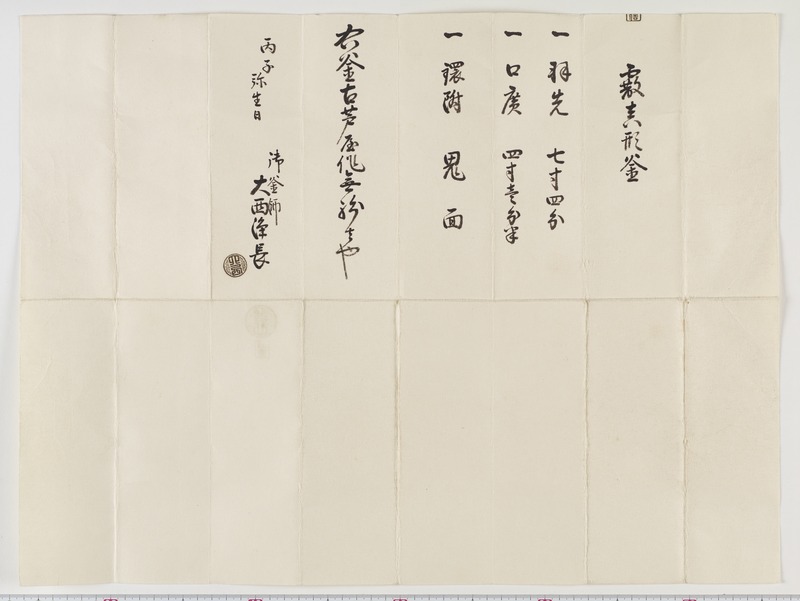 霰真形釜
一 羽先 七寸四分
一 口廣 四寸壱分半
一 環附 鬼面
右釜古芦屋作無紛者也
丙子弥生日
御釜師
大西浄長